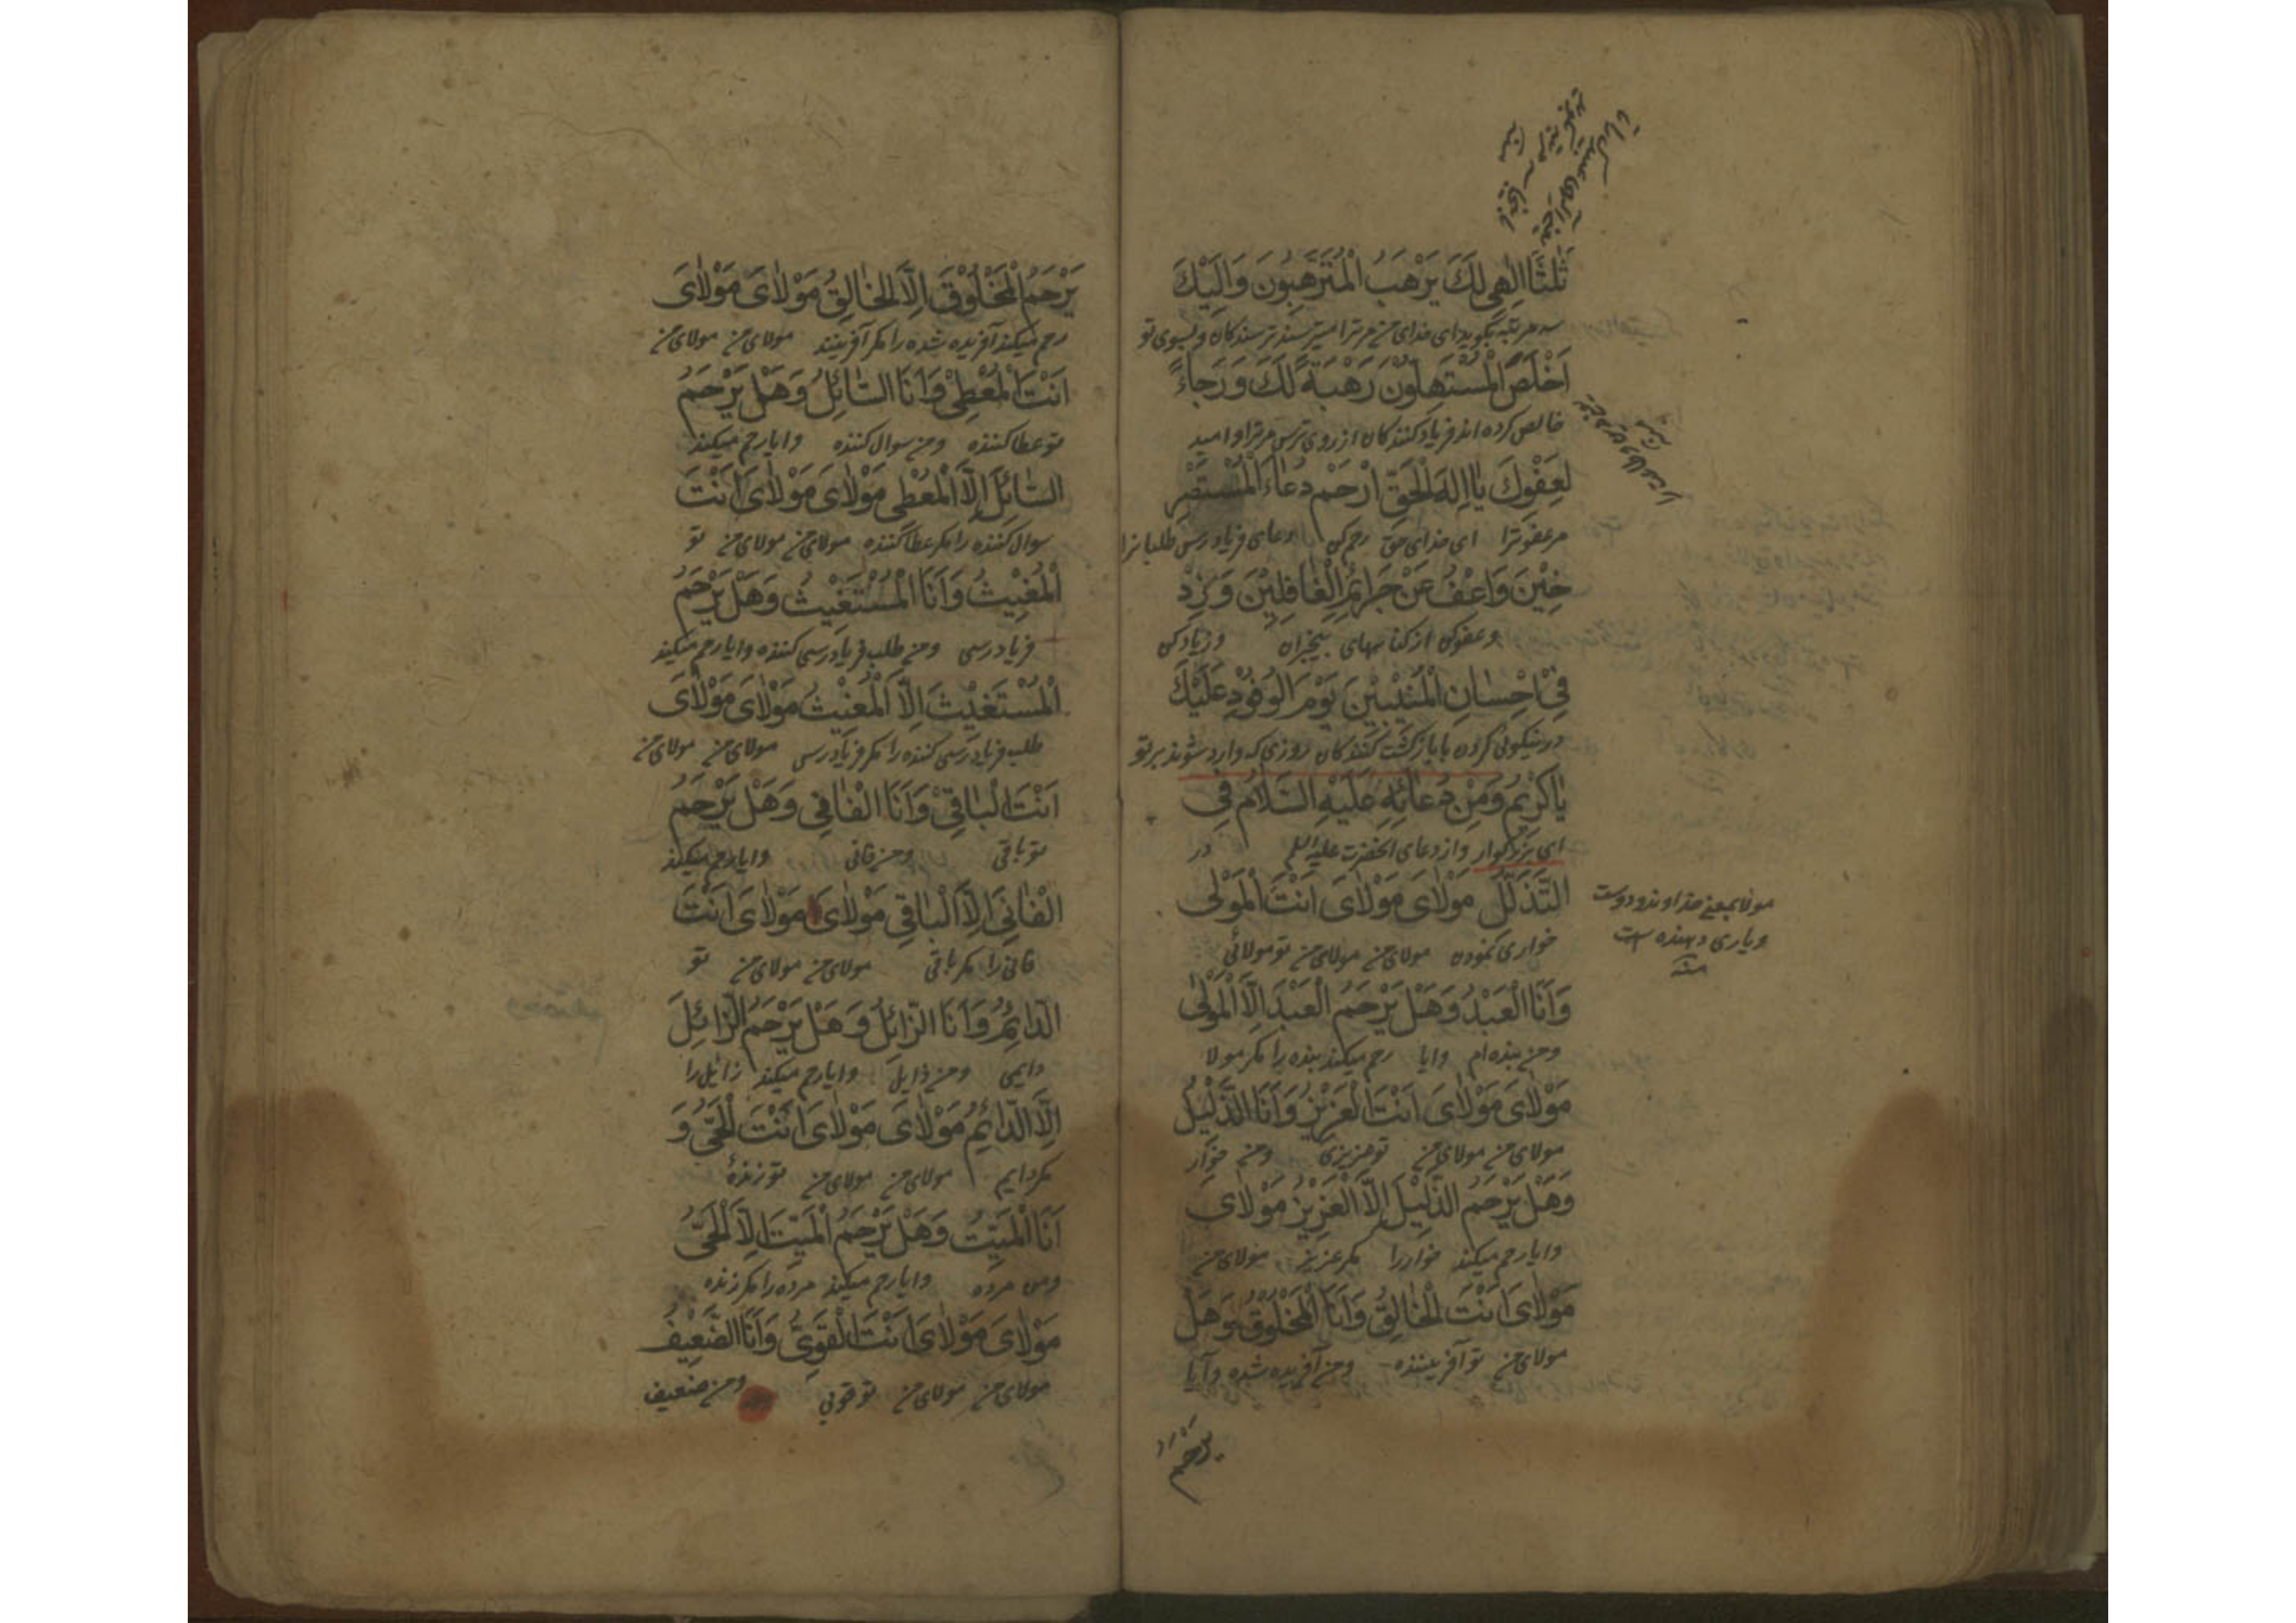 ثَلٰثًا اِلٰهِی لَكَ يَرْهَبُ الْمُتَرَهِّبُونَ وَاِلَيْكَ
سه مرتبه بگوید ای خدای من مر ترا میترسند ترسندکان و بسوی تو
اَخْلَصَ الْمُسْتَهِلُّوْنَ رَهْبَةً لَكَ وَرَجَاءً
خالص کرده اند فریاد کنندکان از روی ترس مر ترا و امید
لِعَفْوِكَ يٰا اِلٰهَ الْحَقِّ ارْحَمْ دُعَاءَ الْمُسْتَصْرِ
مر عفو ترا ای خدای حق رحم کن دعای فریاد رس طلبانرا
خِيْنَ وَاعْفُ عَنْ جَرَائِمِ الْغٰافِلِيْنَ وَزِدْ
و عفو کن از کناههای بیخبران و زیاد کن
فِیْ اِحْسٰانِ الْمُنِيْبِيْنَ يَوْمَ الْوُفُوْدِ عَلَيْكَ
در نیکوئی کردن با بازکشت کنندکان روزی که وارد شوند بر تو
يٰا كَرِيْمُ وَمِنْ دُعَائِهِ عَلَيْهِ السَّلَامُ فِی
ای بزرکوار و از دعای آنحضرت علیه السلم در
التَّذَلُّلِ مَوْلٰایَ مَوْلٰایَ اَنْتَ الْمَوْلٰی
مولا بمعنی خداوند و دوست
و یاری دهنده است
منه
خواری نمودن مولای من مولای من تو مولائی
وَاَنَا الْعَبْدُ وَهَلْ يَرْحَمُ الْعَبْدَ اِلَّا الْمَوْلٰی
و من بنده ام و ایا رحم میکند بنده را مکر مولا
مَوْلٰایَ مَوْلٰایَ اَنْتَ الْعَزِيْزُ وَاَنَا الذَّلِيْلُ
مولای من مولای من تو عزیزی و من خوار
وَهَلْ يَرْحَمُ الذَّلِيْلَ اِلَّا الْعَزِيْزُ مَوْلٰایَ
و ایا رحم میکند خوار را مکر عزیز مولای من
مَوْلٰایَ اَنْتَ الْخٰالِقُ وَاَنَا الْمَخْلُوْقُ وَهَلْ
مولای من تو آفریننده و من آفریده شده و آیا
یرحم
يَرْحَمُ الْمَخْلُوْقَ اِلَّا الْخٰالِقُ مَوْلٰایَ مَوْلٰایَ
رحم میکند آفریده شده را مکر آفرینند مولای من مولای من
اَنْتَ الْمُعْطِیْ وَاَنَا السَّائِلُ وَهَلْ يَرْحَمُ
تو عطا کننده و من سوال کننده و ایا رحم میکند
السَّائِلَ اِلَّا الْمُعْطِی مَوْلٰایَ مَوْلٰایَ اَنْتَ
سوال کننده را مکر عطا کننده مولای من مولای من تو
الْمُغِيْثُ وَاَنَا الْمُسْتَغِيْثُ وَهَلْ يَرْحَمُ
فریاد رسی و من طلب فریاد رسی کننده و ایا رحم میکند
الْمُسْتَغِيْثَ اِلَّا الْمُغِيْثُ مَوْلٰایَ مَوْلٰایَ
طلب فریاد رسی کننده را مکر فریاد رسی مولای من مولای من
اَنْتَ الْبٰاقِیْ وَاَنَا الْفٰانِی وَهَلْ يَرْحَمُ
تو باقی و من فانی و ایا رحم میکند
الْفٰانِیَ اِلَّا الْبٰاقِی مَوْلٰایَ مَوْلٰایَ اَنْتَ
فانی را مکر باقی مولای من مولای من تو
الدَّائِمُ وَاَنَا الزَّائِلُ وَهَلْ يَرْحَمُ الزَّائِلَ
دایمی و من زایل و ایا رحم میکند زایل را
اِلَّا الدَّائِمُ مَوْلٰایَ مَوْلٰایَ اَنْتَ الْحَیُّ وَ
مکر دایم مولای من مولای من تو زندهٔ
اَنَا الْمَيِّتُ وَهَلْ يَرْحَمُ الْمَيِّتَ اِلَّا الْحَیُّ
و من مرده و ایا رحم میکند مرده را مکر زنده
مَوْلٰایَ مَوْلٰایَ اَنْتَ الْقَوِیُّ وَاَنَا الضَّعِيْفُ
مولای من مولای من تو قوئی و من ضعیف